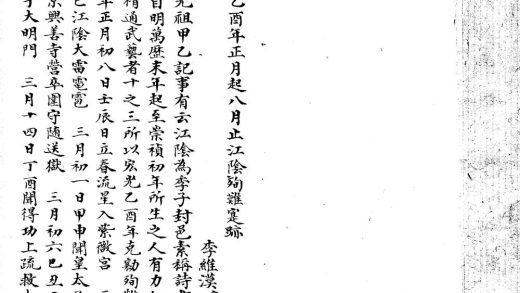 乙酉年正月起八月止江陰殉難寔跡
李維漢
先祖甲乙記事有云江陰為季子封邑素稱詩
自明萬歷末年起至崇禎初年所生之人有力
精通武藝者十之三所以宏光乙酉年克勷殉
年正月初八日壬辰日立春流星入紫微宮
巳江陰大雷電雹 三月初一日甲申聞皇太
京興善寺營卒圍守隨送獄 三月初六己丑
大明門 三月十四日丁酉聞得功上疏救